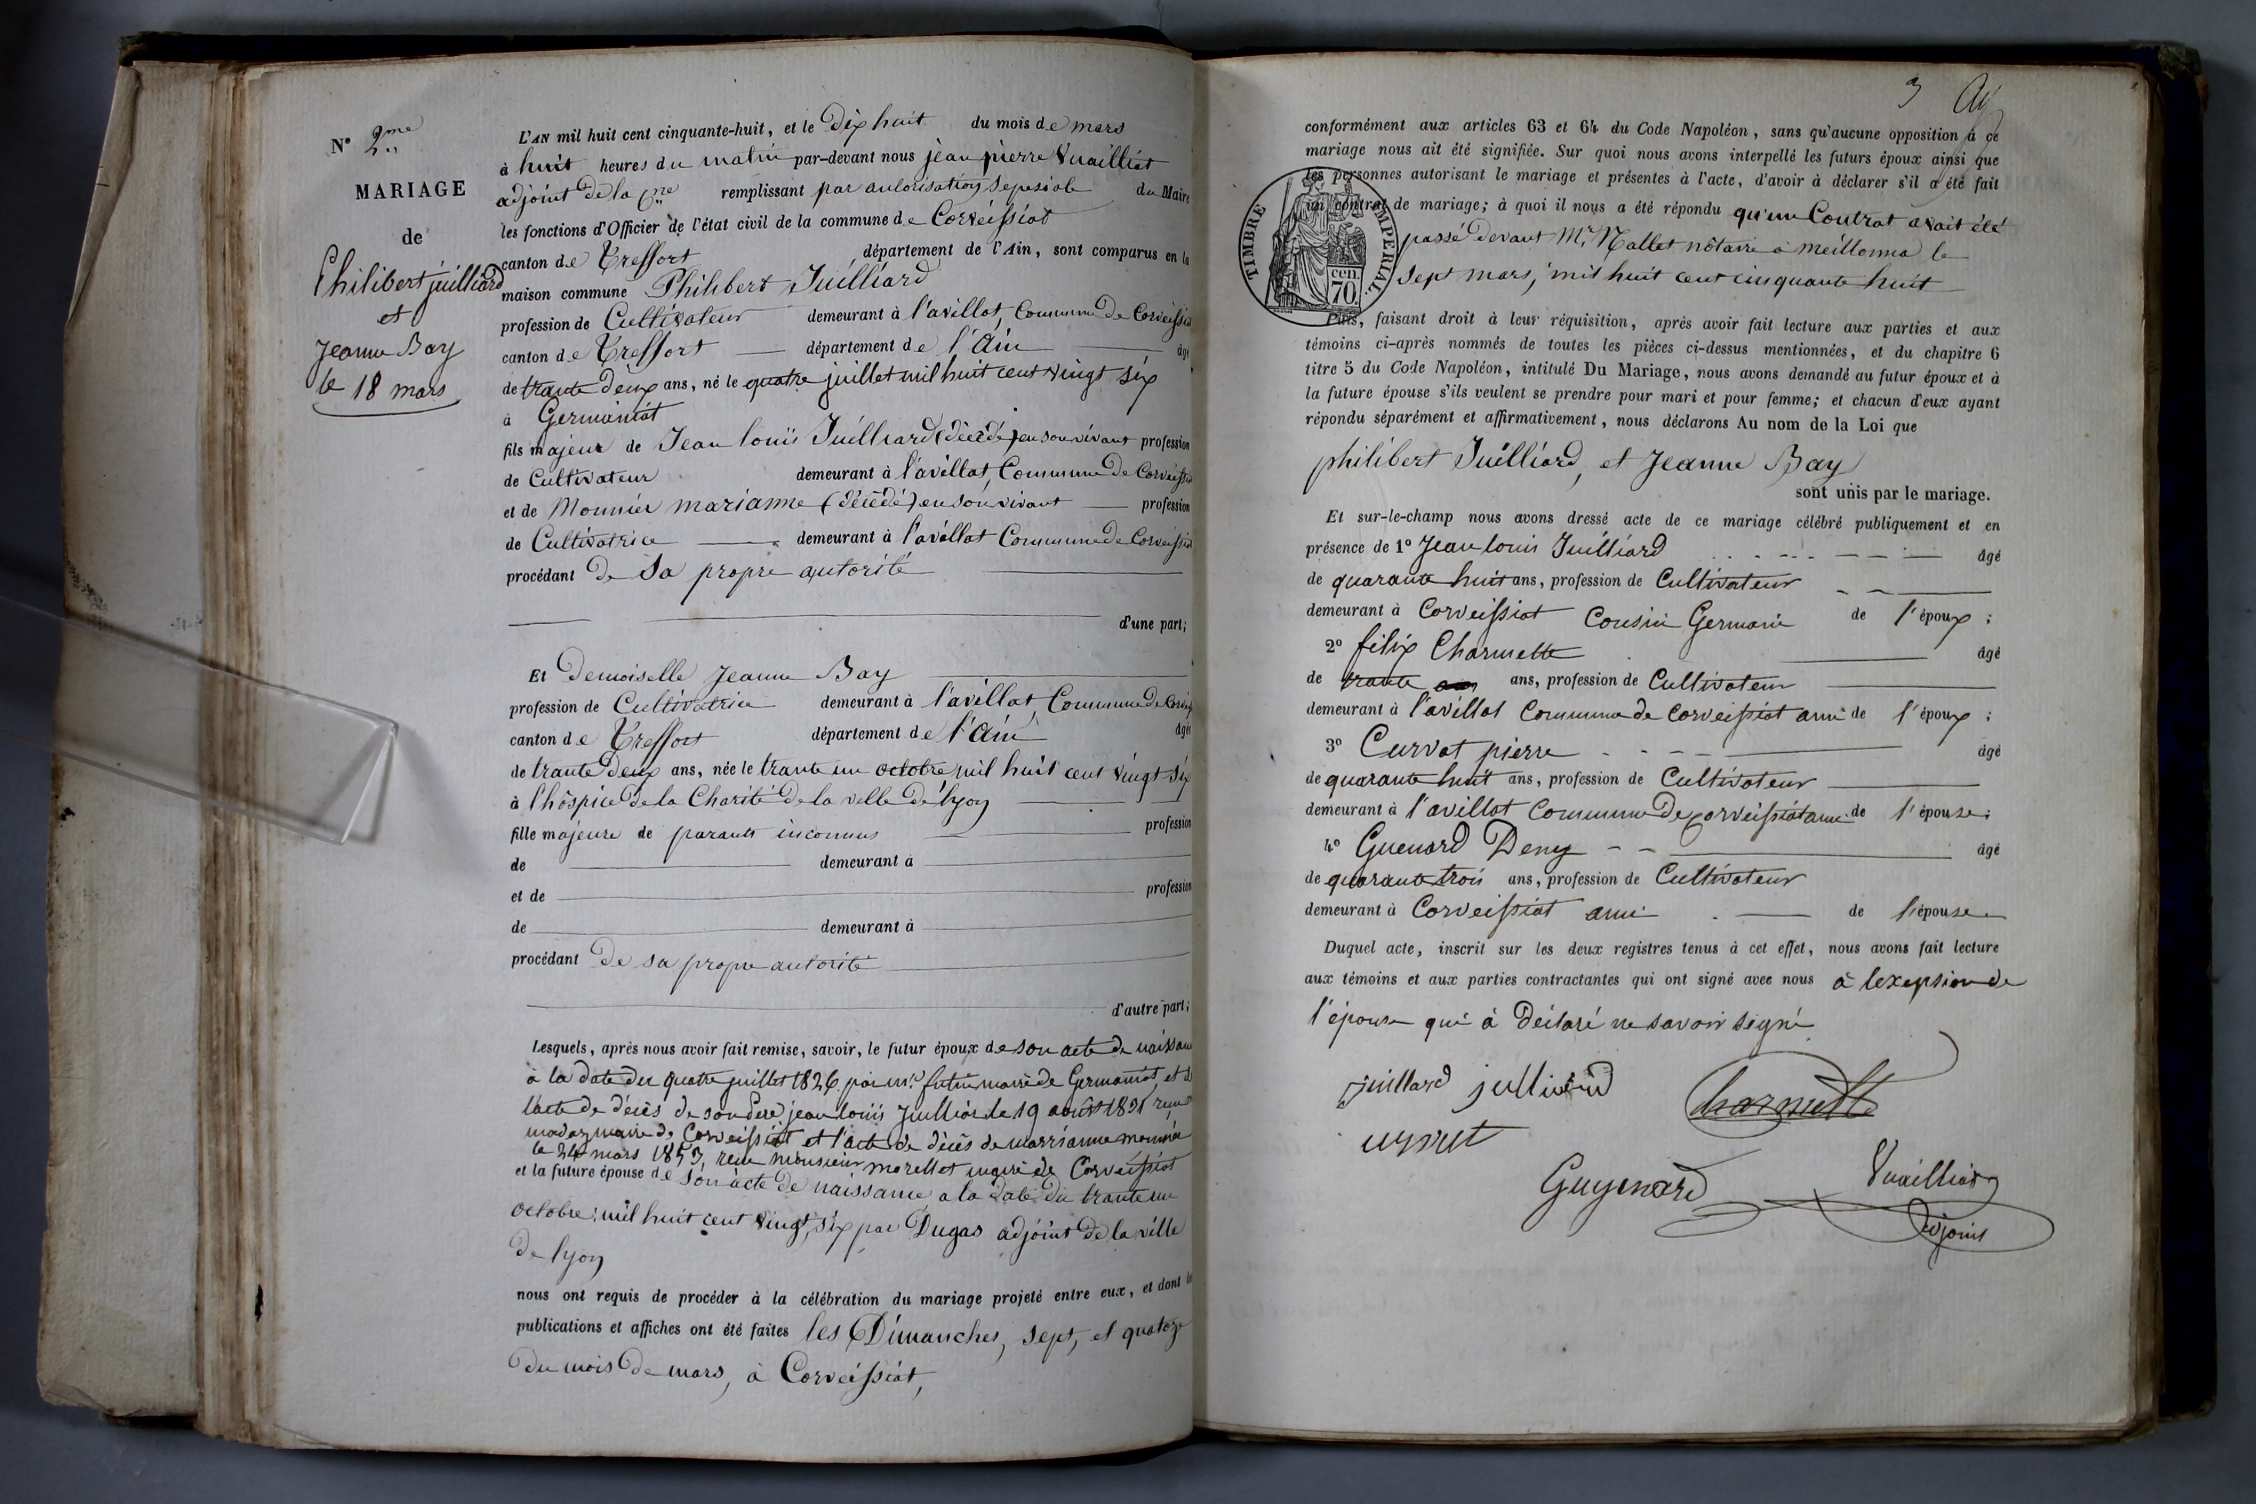 N° 2me
MARIAGE
de
Philibert juilliard
et
Jeanne Bay
le 18 mars
L'AN mil huit cent cinquante-huit, et le Dix huit du mois de mars
à huit heures du matin par-devant nous jean pierre Vuailliat
adjoint de la Cne remplissant par autorisation spesiale du Maire
les fonctions d'Officier de l'état civil de la commune de Corveissiat
canton de Treffort département de l'Ain, sont comparus en la
maison commune Philibert Juilliard
profession de Cultivateur demeurant à l'avillat, Commune de Corveissiat
canton de Treffort département de l'Ain âgé
de trante deux ans, né le quatre juillet mil huit cent vingt six
à Germaniat
fils majeur de Jean louis Juilliard (décédé) en son vivant profession
de Cultivateur demeurant à l'avillat, Commune de Corveissiat
et de Monnier marianne (décédé) en son vivant profession
de Cultivatrice demeurant à l'avillat Commune de Corveissiat
procédant de sa propre autorité
d'une part;
Et Demoiselle Jeanne Bay
profession de Cultivatrice demeurant à l'avillat Commune de Corveiss
canton de Treffort département de l'Ain âgée
de trante deux ans, née le trante un octobre mil huit cent vingt six
à l'hôspice de la Charité de la ville de lyon
fille majeure de parants inconnus profession
de demeurant à
et de profession
de demeurant à
procédant De sa propre autorité
d'autre part;
Lesquels, après nous avoir fait remise, savoir, le futur époux de son acte de naissance
à la date du quatre juillet 1826 par mr maire de Germaniat, et de
l'acte de décès de son Père jean louis Juilliar le 19 août
maire de Corveissiat et l'acte de décès de marrianne monnier
le 24 mars 1853, reçu monsieur morellet maire de Corveissiat
et la future épouse de son acte de naissance a la date du trante un
octobre mil huit cent vingt six par Dugas adjoint de la ville
De lyon
nous ont requis de procéder à la célébration du mariage projeté entre eux, et dont les
publications et affiches ont été faites les Dimanches, sept, et quatoze
du mois de mars, à Corveissiat,
3
conformément aux articles 63 et 64 du Code Napoléon, sans qu'aucune opposition à ce
mariage nous ait été signifiée. Sur quoi nous avons interpellé les futurs époux ainsi que
les personnes autorisant le mariage et présentes à l'acte, d'avoir à déclarer s'il a été fait
un contrat de mariage; à quoi il nous a été répondu qu'un Contrat avait été
passé devant Mr Nallet nôtaire à meillonna le
sept mars, mil huit cent cinquante huit
TIMBRE IMPERIAL
cen.
70.
Puis, faisant droit à leur réquisition, après avoir fait lecture aux parties et aux
témoins ci-après nommés de toutes les pièces ci-dessus mentionnées, et du chapitre 6
titre 5 du Code Napoléon, intitulé Du Mariage, nous avons demandé au futur époux et à
la future épouse s'ils veulent se prendre pour mari et pour femme; et chacun d'eux ayant
répondu séparément et affirmativement, nous déclarons Au nom de la Loi que
philibert Juilliard, et Jeanne Bay
sont unis par le mariage.
Et sur-le-champ nous avons dressé acte de ce mariage célébré publiquement et en
présence de 1° Jean louis Juilliard âgé
de quarante huit ans, profession de Cultivateur
demeurant à Corveissiat Cousin Germain de l'époux;
2° félix Charmette âgé
de trante ans, profession de Cultivateur
demeurant à l'avillat Commune de Corveissiat ami de l'époux;
3° Curvat pierre âgé
de quarante huit ans, profession de Cultivateur
demeurant à l'avillat Commune de Corveissiat ami de l'épouse;
4° Guenard Deny âgé
de quarante trois ans, profession de Cultivateur
demeurant à Corveissiat ami de l'épouse
Duquel acte, inscrit sur les deux registres tenus à cet effet, nous avons fait lecture
aux témoins et aux parties contractantes qui ont signé avec nous à lexepsion de
l'épouse qui à déclaré ne savoir signé
juillard julliard Charmette
Guyenard Vuailliat
adjoint